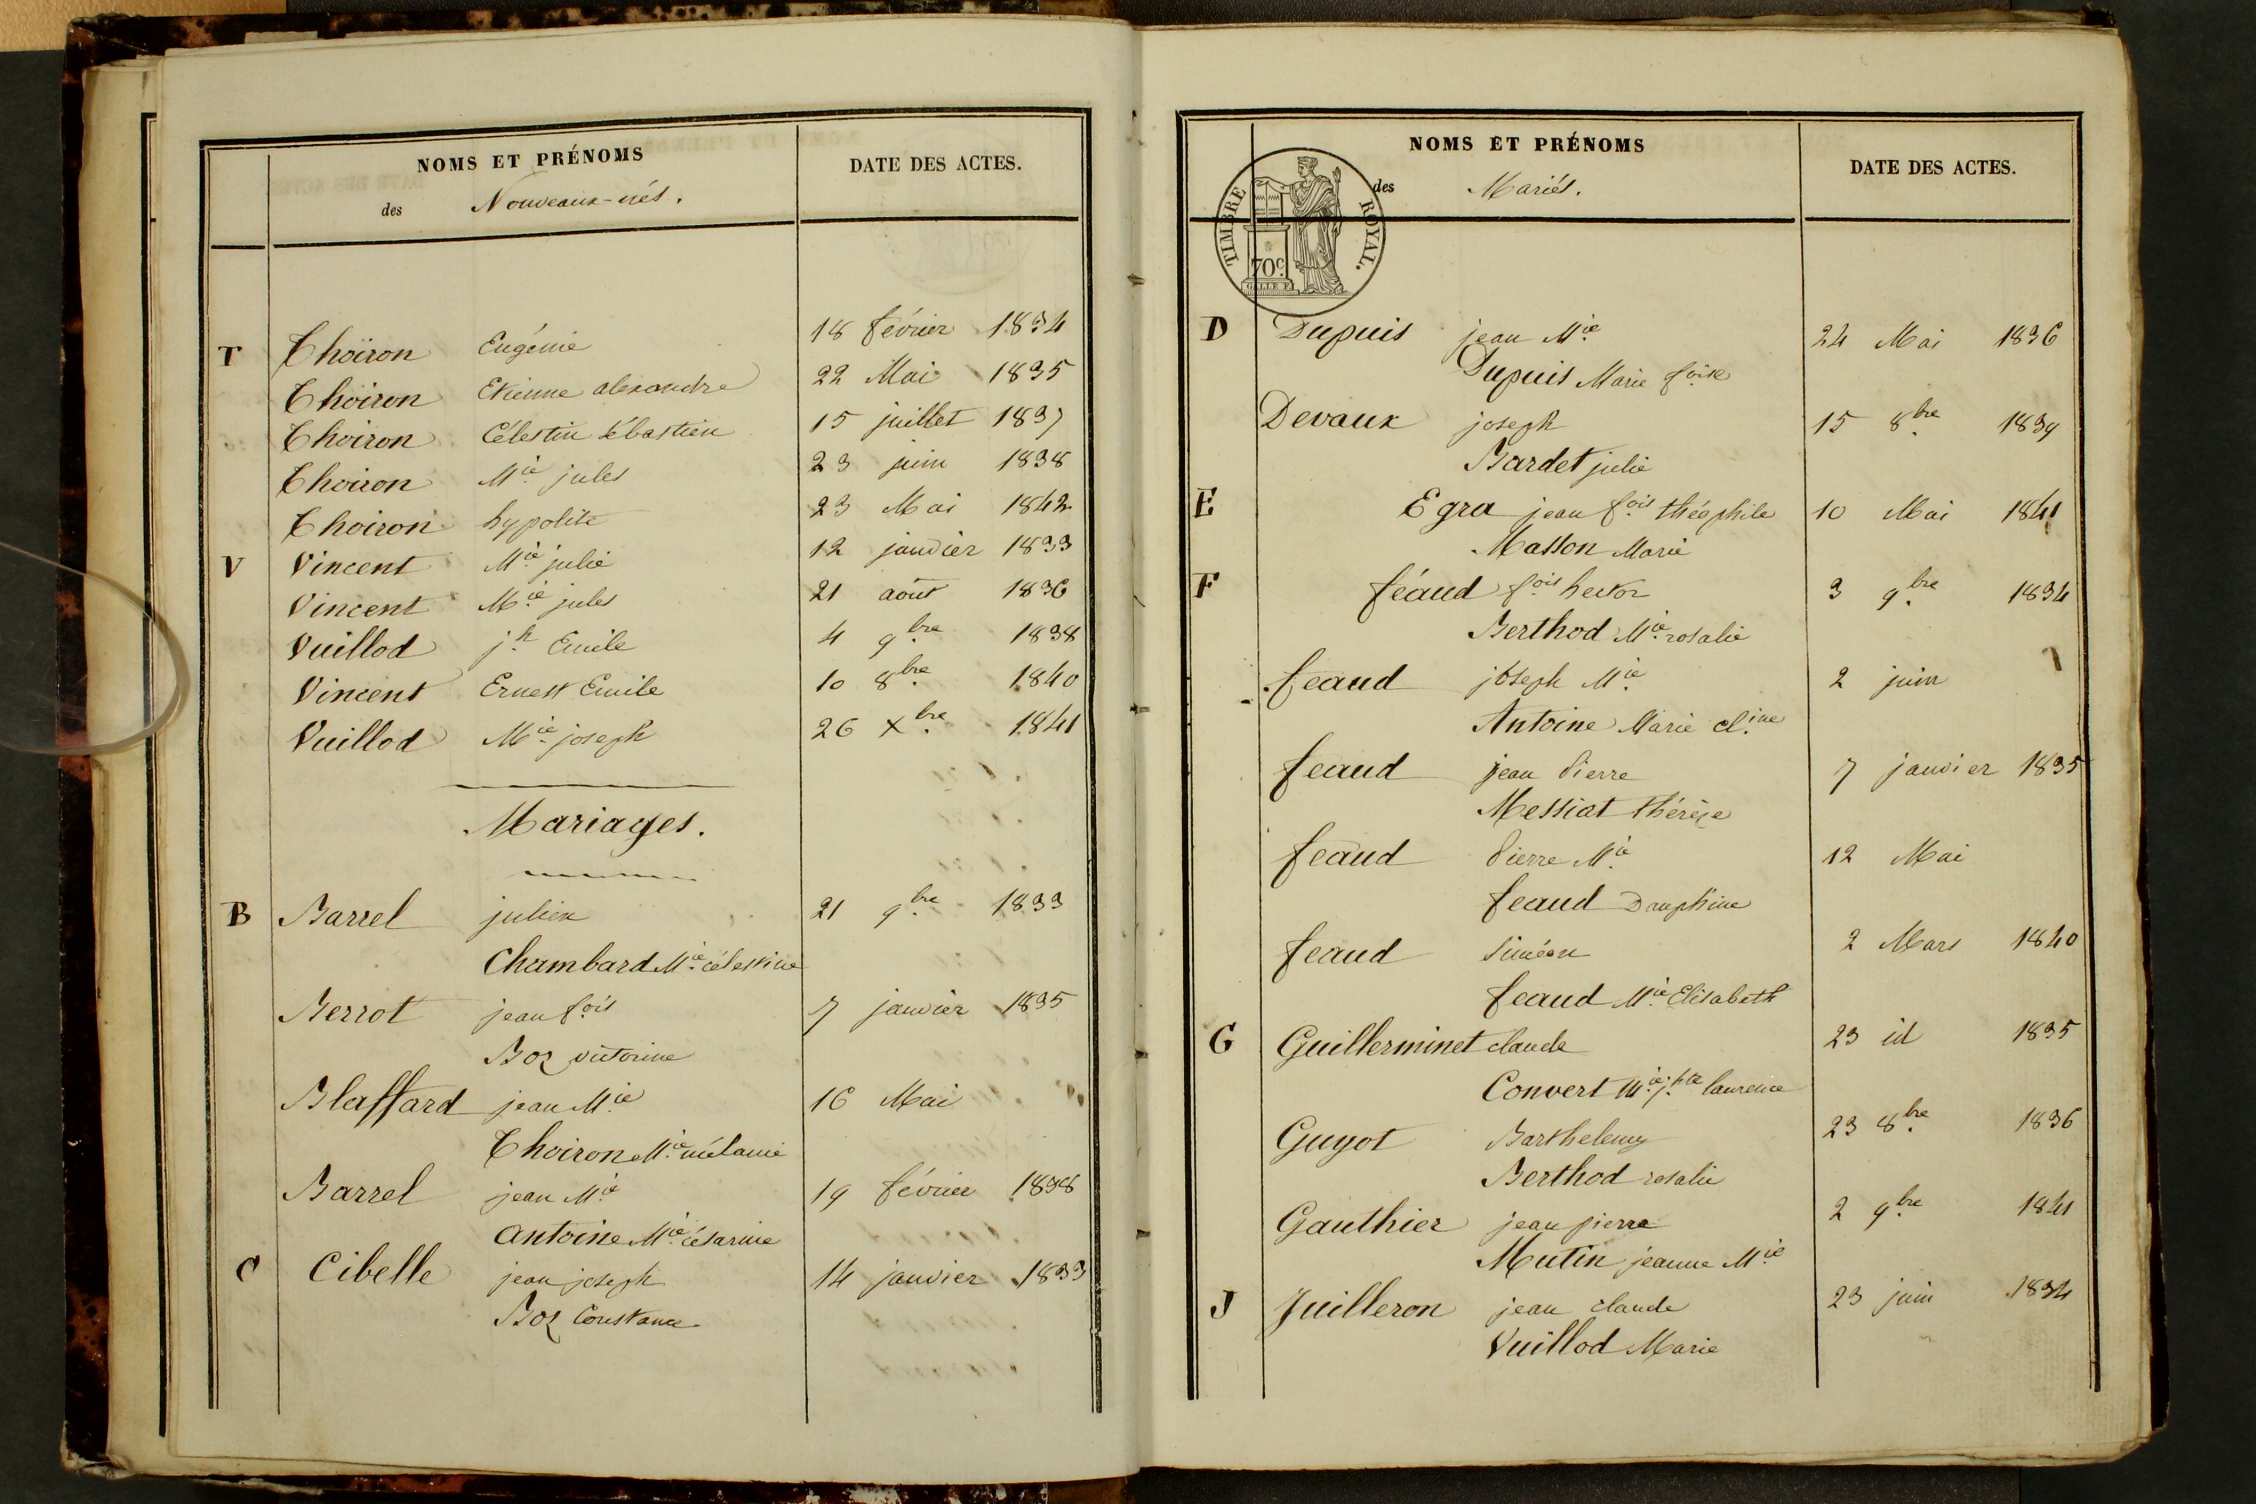 NOMS ET PRÉNOMS DATE DES ACTES.
des Nouveaux-nés.
T Thoiron Eugénie 18 février 1834
Thoiron Etienne alexandre 22 Mai 1835
Thoiron Célestin sébastien 15 juillet 1837
Thoiron Mie jules 23 juin 1838
Thoiron hypolite 23 Mai 1842
V Vincent Mie julie 12 janvier 1833
Vincent Mie jules 21 août 1836
Vuillod jh Emile 4 9bre 1838
Vincent Ernest Emile 10 8bre 1840
Vuillod Mie joseph 26 Xbre 1841
Mariages.
B Barrel julien 21 9bre 1833
Chambard Mie célestine
Berrot jean fois 7 janvier 1835
Boz victorine
Blaffard jean Mie 16 Mai
Thoiron Mie mélanie
Barrel jean Mie 19 février 1838
Antoine Mie césarine
C Cibelle jean joseph 14 janvier 1833
Boz Constance
NOMS ET PRÉNOMS DATE DES ACTES.
des Mariés.
TIMBRE ROYAL.
70c
D Dupuis jean Mie 24 Mai 1836
Dupuis Marie foise
Devaux joseph 15 8bre 1839
Bardet julie
E Egra jean fois théophile 10 Mai 1841
Masson Marie
F féaud fois hector 3 9bre 1834
Berthod Mie rosalie
feaud joseph Mie 2 juin
Antoine Marie cl.ine
feaud jean Pierre 7 janvier 1835
Messiat thérèze
feaud Pierre Mie 12 Mai
feaud Dauphine
feaud Siméon 2 Mars 1840
feaud Mie Elisabeth
G Guillerminet claude 23 id 1835
Convert Mie jhte laurence
Guyot Barthelemy 23 8bre 1836
Berthod rosalie
Gauthier jean pierre 2 9bre 1841
Mutin jeanne Mie
J Juilleron jean claude 23 juin 1834
Vuillod Marie